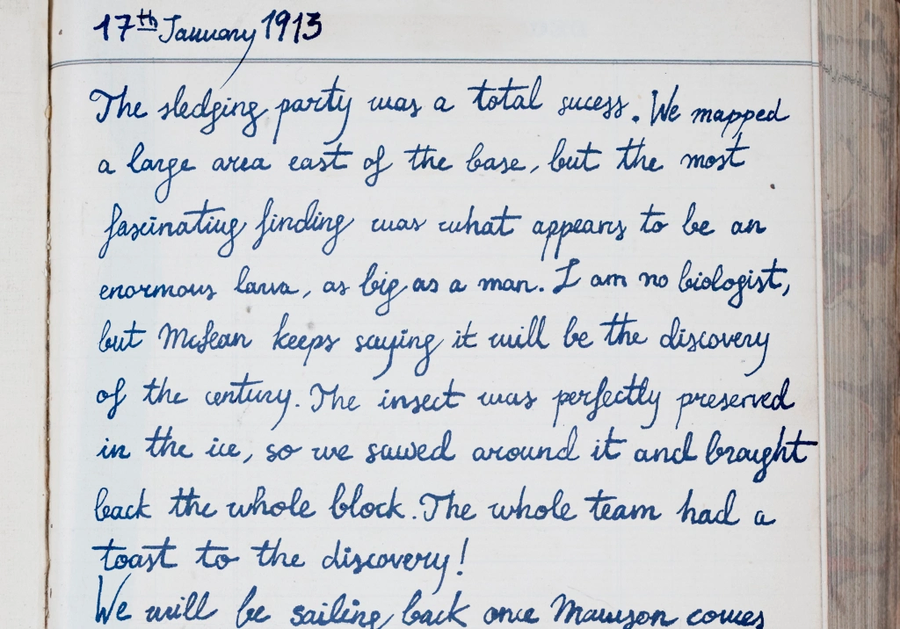 17th January 1913
The sledging party was a total sucess. We mapped
a large area east of the base, but the most
fascinating finding was what appears to be an
enormous larva, as big as a man. I am no biologist,
but McLean keeps saying it will be the discovery
of the century. The insect was perfectly preserved
in the ice, so we sawed around it and brought
back the whole block. The whole team had a
toast to the discovery!
We will be sailing back once Mawson comes